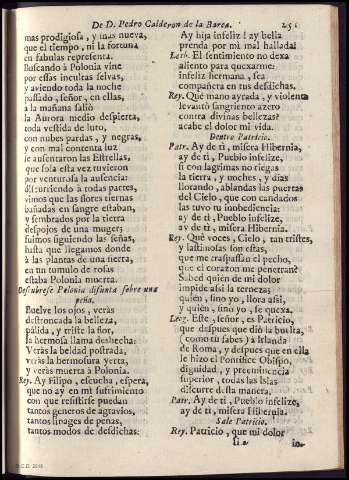 De D. Pedro Calderon de la Barca. 251
mas prodigiosa, y mas nueva,
que el tiempo, ni la fortuna
en fabulas representa.
Buscando à Polonia vine
por essas incultas selvas,
y aviendo toda la noche
passado, señor, en ellas,
a la mañana saliò
la Aurora medio despierta,
toda vestida de luto,
con nubes pardas, y negras,
y con mal contenta luz
se ausentaron las Estrellas,
que sola esta vez tuvieron
por venturosa la ausencia:
discurriendo à todas partes,
vimos que las flores tiernas
bañadas en sangre estaban,
y sembrados por la tierra
despojos de una muger;
fuimos siguiendo las señas,
hasta que llegamos donde
à las plantas de una sierra,
en un tumulo de rosas
estaba Polonia muerta.
Descubrese Polonia difunta sobre una
peña.
Buelve los ojos, veràs
destroncada la belleza,
pálida, y triste la flor,
la hermosa llama deshecha:
Veràs la beldad postrada,
veràs la hermosura yerta,
y veràs muerta à Polonia.
Rey. Ay Filipo, escucha, espera,
que no ay en mi sufrimiento
con que resistirse puedan
tantos generos de agravios,
tantos linages de penas,
tantos modos de desdichas:
Ay hija infeliz! ay bella
prenda por mi mal hallada!
Lesb. El sentimiento no dexa
aliento para quexarme:
infeliz hermana, sea
compañera en tus desdichas.
Rey. Què mano ayrada, y violenta
levantò sangriento azero
contra divinas bellezas?
acabe el dolor mi vida.
Dentro Patricio.
Patr. Ay de ti, misera Hibernia,
ay de ti, Pueblo infelize,
si con lagrimas no riegas
la tierra, y noches, y dias
llorando, ablandas las puertas
del Cielo, que con candados
las tuvo tu inobediencia:
ay de ti, Pueblo infelize,
ay de ti, misera Hibernia.
Rey. Què voces, Cielo, tan tristes,
y lastimosas son estas,
que me traspassan el pecho,
que el corazon me penetran?
Sabed quien de mi dolor
impide assi la terneza;
quien, sino yo, llora assi,
y quien, sino yo, se quexa.
Leog. Este, señor, es Patricio,
que despues que diò la buelta,
( como tu sabes ) à Irlanda
de Roma, y despues que en ella
le hizo el Pontifice Obispo,
dignidad, y preeminencia
superior, todas las Islas
discurre desta manera.
Patr. Ay de ti, Pueblo infelize,
ay de ti, misera Hibernia.
Sale Patricio.
Rey. Patricio, que mi dolor
Ii 2 in-